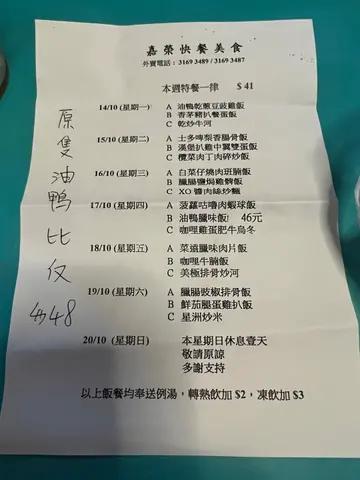 嘉榮快餐美食
外賣電話：3169 3489 / 3169 3487
本週特餐一律 $ 41
14/10 (星期一) A 油鴨乾蔥豆豉雞飯
B 香茅豬扒餐蛋飯
C 乾炒牛河
15/10 (星期二) A 士多啤梨香腸骨飯
B 漢堡扒雞中翼雙蛋飯
C 欖菜肉丁肉碎炒飯
16/10 (星期三) A 白菜仔燒肉斑腩飯
B 臘腸鹽焗雞髀飯
C XO醬肉絲炒麵
17/10 (星期四) A 菠蘿咕嚕肉蝦球飯
B 油鴨臘味飯 46元
C 咖哩雞蛋肥牛烏冬
18/10 (星期五) A 菜遠臘味肉片飯
B 咖哩牛腩飯
C 美極排骨炒河
19/10 (星期六) A 臘腸豉椒排骨飯
B 鮮茄腸蛋雞扒飯
C 星洲炒米
20/10 (星期日) 本星期日休息壹天
敬請原諒
多謝支持
以上飯餐均奉送例湯，轉熱飲加 $2，凍飲加 $3
原隻油鴨比仅
$48